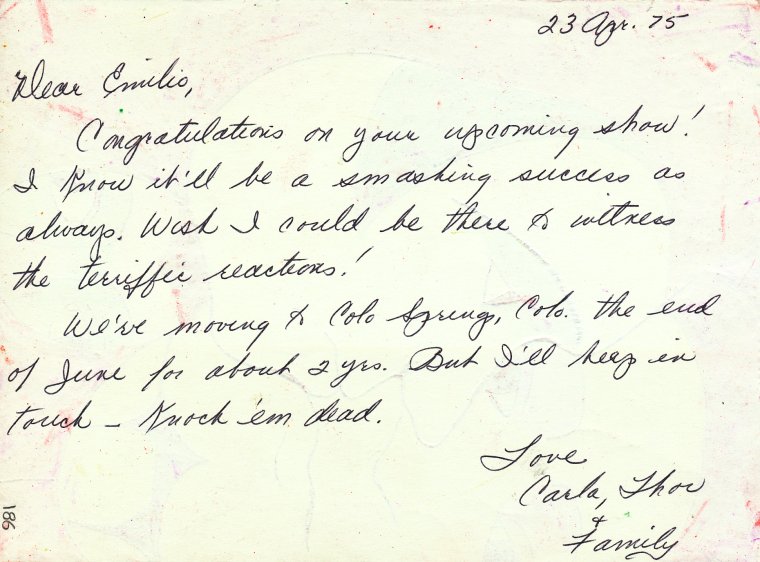 23 Apr. 75
Dear Emilio,
Congratulations on your upcoming show!
I know it'll be a smashing success as
always. Wish I could be there to witness
the terriffic reactions!
We're moving to Colo Springs, Colo. the end
of June for about 2 yrs. But I'll keep in
touch - Knock 'em dead.
Love
Carla, Thor
&
Family
186